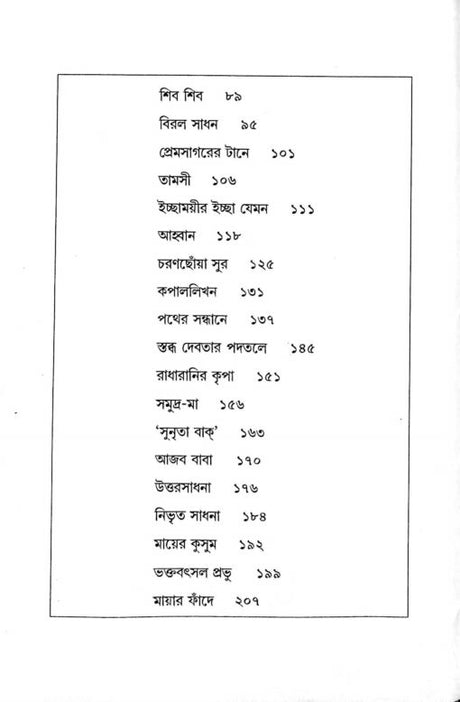 শিব শিব ৮৯
বিরল সাধন ৯৫
প্রেমসাগরের টানে ১০১
তামসী ১০৬
ইচ্ছাময়ীর ইচ্ছা যেমন ১১১
আহ্বান ১১৮
চরণছোঁয়া সুর ১২৫
কপাললিখন ১৩১
পথের সন্ধানে ১৩৭
স্তব্ধ দেবতার পদতলে ১৪৫
রাধারানির কৃপা ১৫১
সমুদ্র-মা ১৫৬
‘সুনৃতা বাক্’ ১৬৩
আজব বাবা ১৭০
উত্তরসাধনা ১৭৬
নিভৃত সাধনা ১৮৪
মায়ের কুসুম ১৯২
ভক্তবৎসল প্রভু ১৯৯
মায়ার ফাঁদে ২০৭